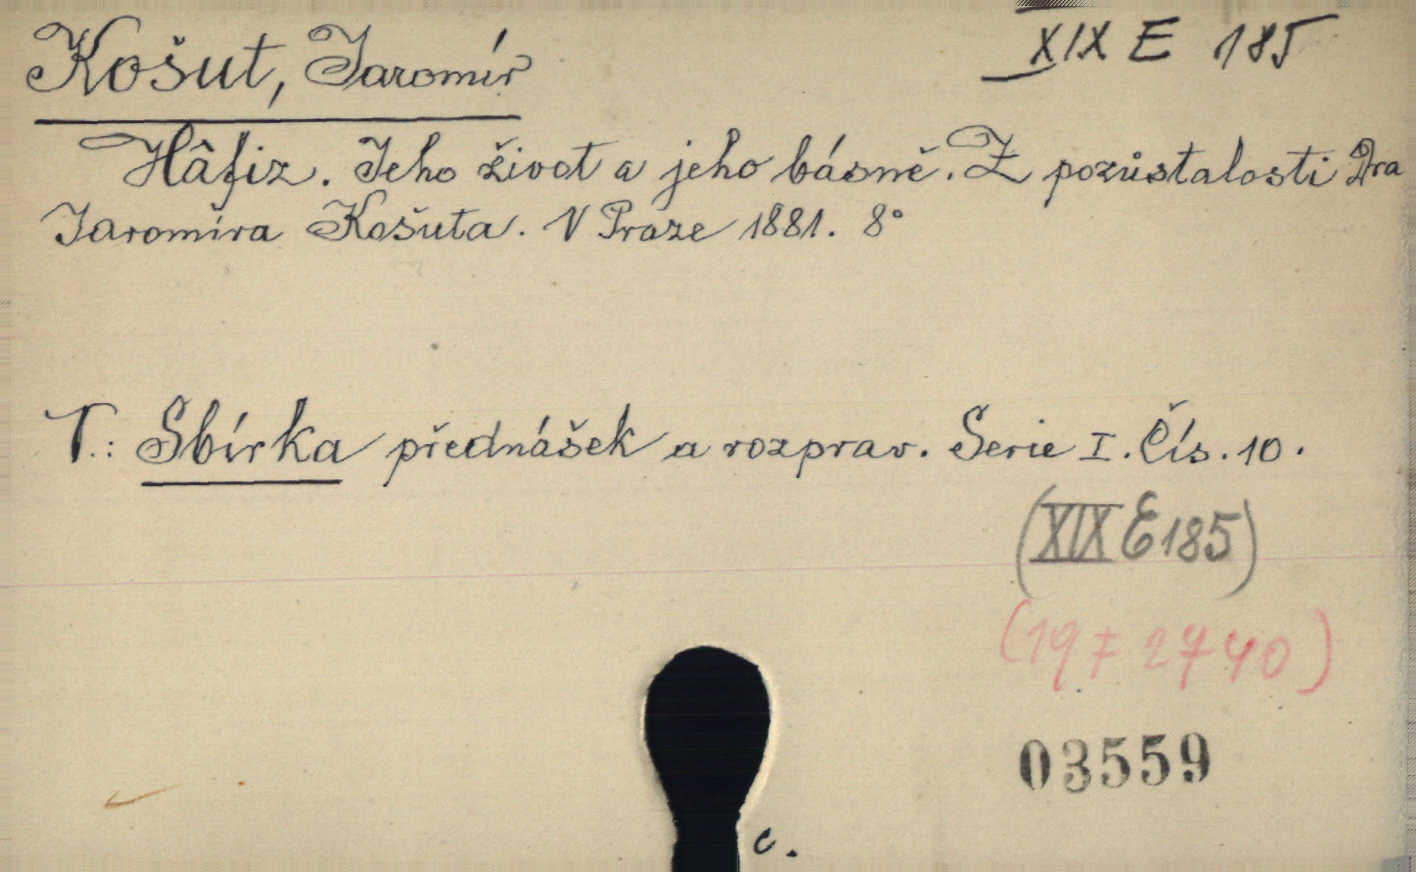 Košut, Jaromír
XIX E 185
Hâfiz. Jeho život a jeho básně. Z pozůstalosti Dra
Jaromíra Košuta. V Praze 1881. 8°
T.: Sbírka přednášek a rozprav. Serie I. Čís. 10.
(XIX E 185)
(19 F 2740)
03559
c.